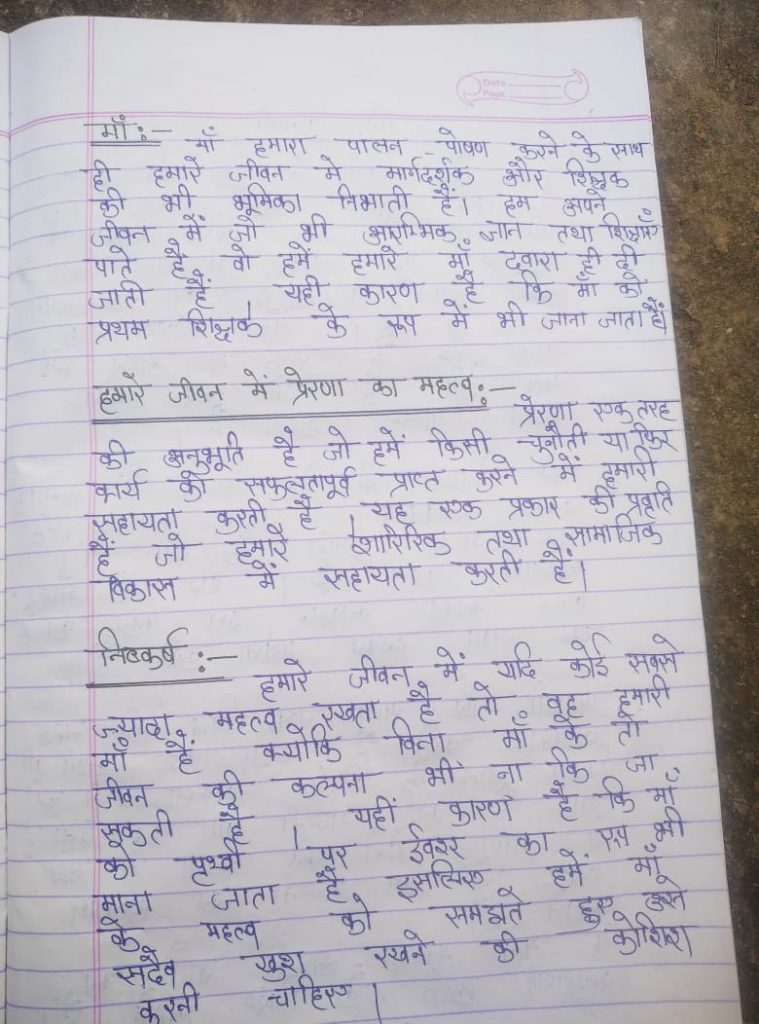 Date
Page
माँ:-
माँ हमारा पालन-पोषण करने के साथ
ही हमारे जीवन मे मार्गदर्शक और शिक्षक
की भी भूमिका निभाती है। हम अपने
जीवन में जो भी आरम्भिक ज्ञान तथा शिक्षाएँ
पाते है वो हमें हमारे माँ द्वारा ही दी
जाती हैं। यही कारण है कि माँ को
प्रथम शिक्षक के रूप में भी जाना जाता है।
हमारे जीवन में प्रेरणा का महत्व:-
प्रेरणा एक तरह
की अनुभूति है जो हमें किसी चुनौती या फिर
कार्य को सफलतापूर्व प्राप्त करने में हमारी
सहायता करती है। यह एक प्रकार की प्रवृति
हैं जो हमारे शारीरिक तथा सामाजिक
विकास में सहायता करती है।
निष्कर्ष:-
हमारे जीवन में यदि कोई सबसे
ज्यादा महत्व रखता है तो वह हमारी
माँ हैं क्योकि बिना माँ के तो
जीवन की कल्पना भी ना कि जा
सकती हैं। यहीं कारण है कि माँ
को पृथ्वी पर ईश्वर का रूप भी
माना जाता है इसलिए हमें माँ
के महत्व को समझते हुए उसे
सदैव खुश रखने की कोशिश
करनी चाहिए।